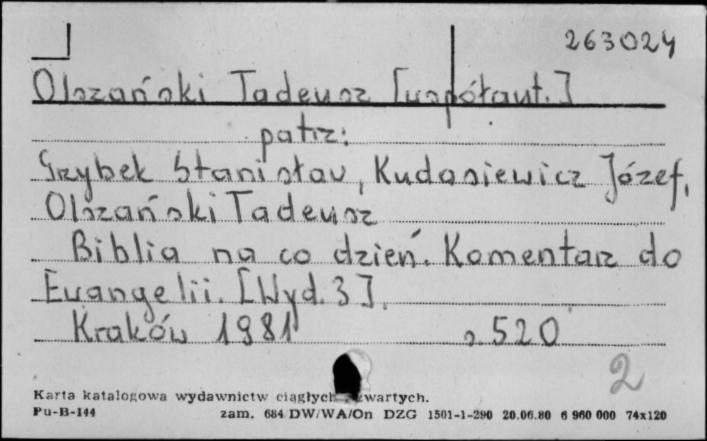 263024
Olszański Tadeusz [współaut.]
patrz:
Grzybek Stanisław, Kudasiewicz Józef,
Olszański Tadeusz
Biblia na co dzień. Komentarz do
Ewangelii. [Wyd. 3].
Kraków 1981 s. 520
2
Karta katalogowa wydawnictw ciągłych zwartych.
Pu-B-144 zam. 684/DW/WA/On DZG 1501-1-290 20.06.80 6 960 000 74x120